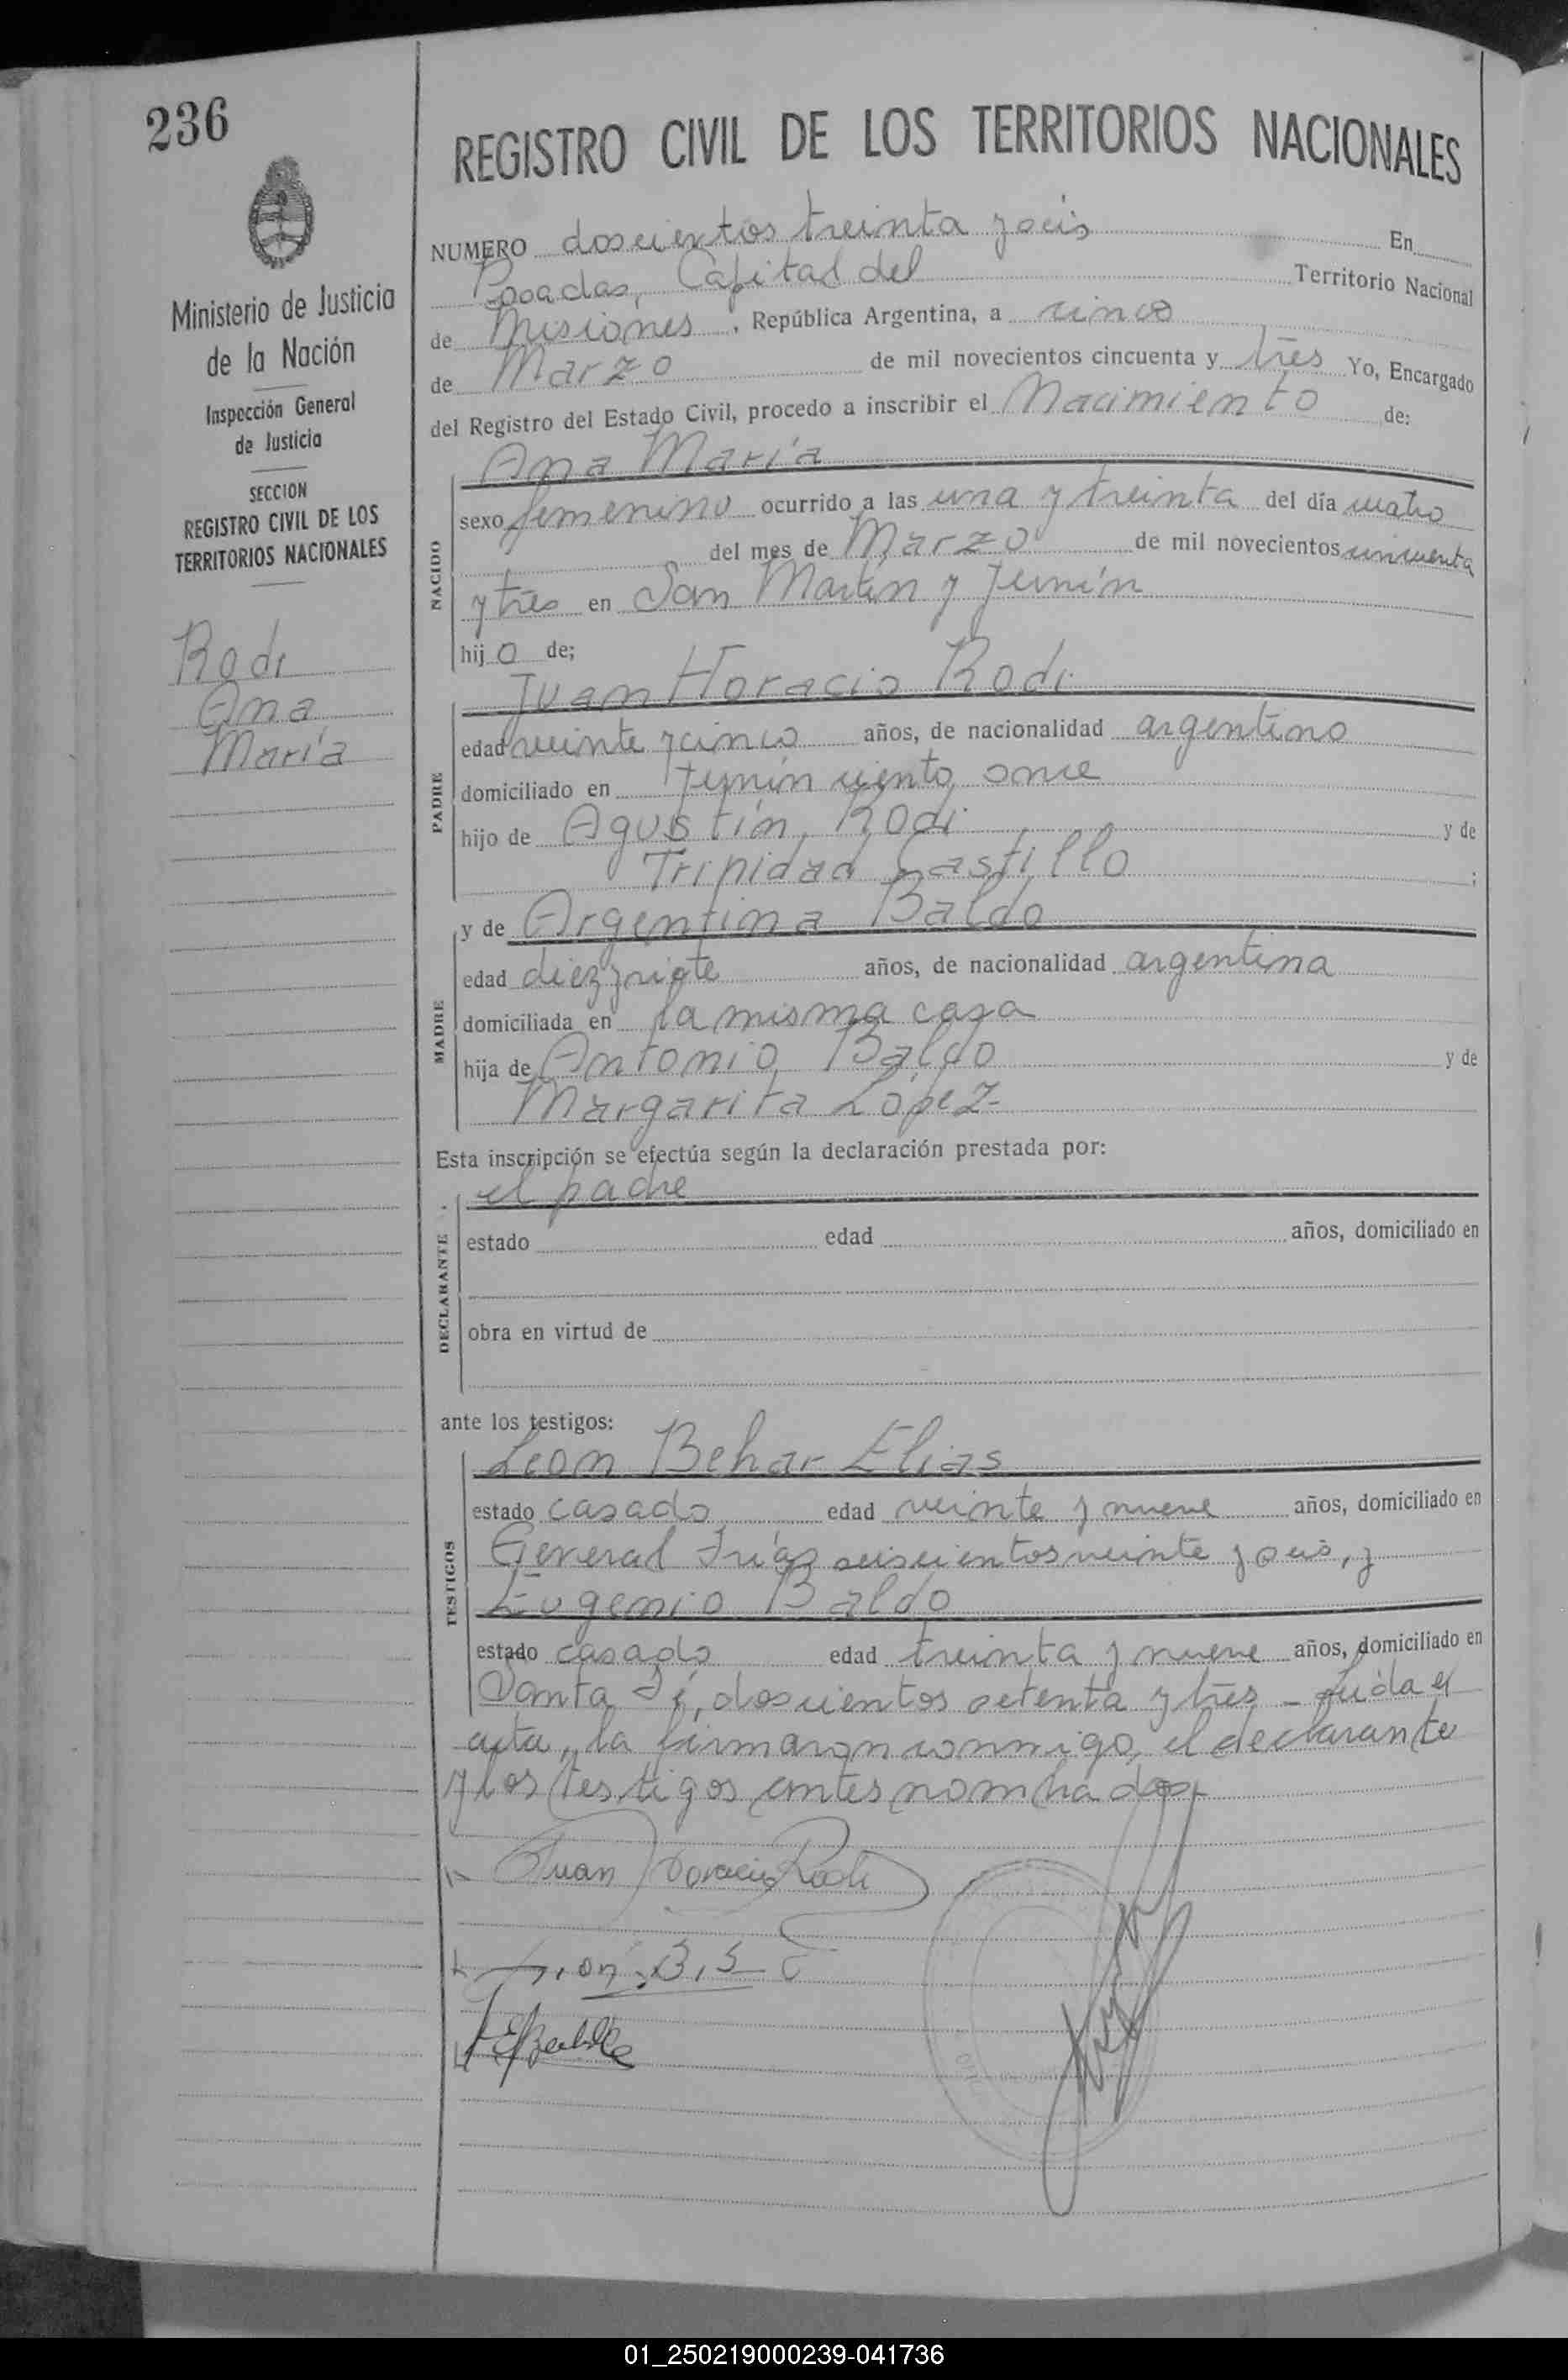 236
Ministerio de Justicia
de la Nación
Inspección General
de Justicia
SECCION
REGISTRO CIVIL DE LOS
TERRITORIOS NACIONALES
Rodi
Ana
María
REGISTRO CIVIL DE LOS TERRITORIOS NACIONALES
NUMERO doscientos treinta y seis En
Posadas, Capital del Territorio Nacional
de Misiones, República Argentina, a cinco
de Marzo de mil novecientos cincuenta y tres Yo, Encargado
del Registro del Estado Civil, procedo a inscribir el Nacimiento de:
Ana María
NACIDO
sexo femenino ocurrido a las una y treinta del día cuatro
del mes de Marzo de mil novecientos cincuenta
y tres en San Martín y Junín
hijo de;
Juan Horacio Rodi
PADRE
edad veinte y cinco años, de nacionalidad argentino
domiciliado en Junín ciento once
hijo de Agustín Rodi y de
Trinidad Castillo ;
y de Argentina Baldo
MADRE
edad diez y siete años, de nacionalidad argentina
domiciliada en la misma casa
hija de Antonio Baldo y de
Margarita López-
Esta inscripción se efectúa según la declaración prestada por:
el padre
DECLARANTE
estado edad años, domiciliado en
obra en virtud de
ante los testigos:
Leon Behar Elias
TESTIGOS
estado casado edad veinte y nueve años, domiciliado en
General Frías seiscientos veinte y seis, y
Eugenio Baldo
estado casado edad treinta y nueve años, domiciliado en
Santa Fé, doscientos setenta y tres - Leída el
acta, la firmaron conmigo, el declarante
y los testigos antes nombrados
Juan Horacio Rodi
01_250219000239-041736